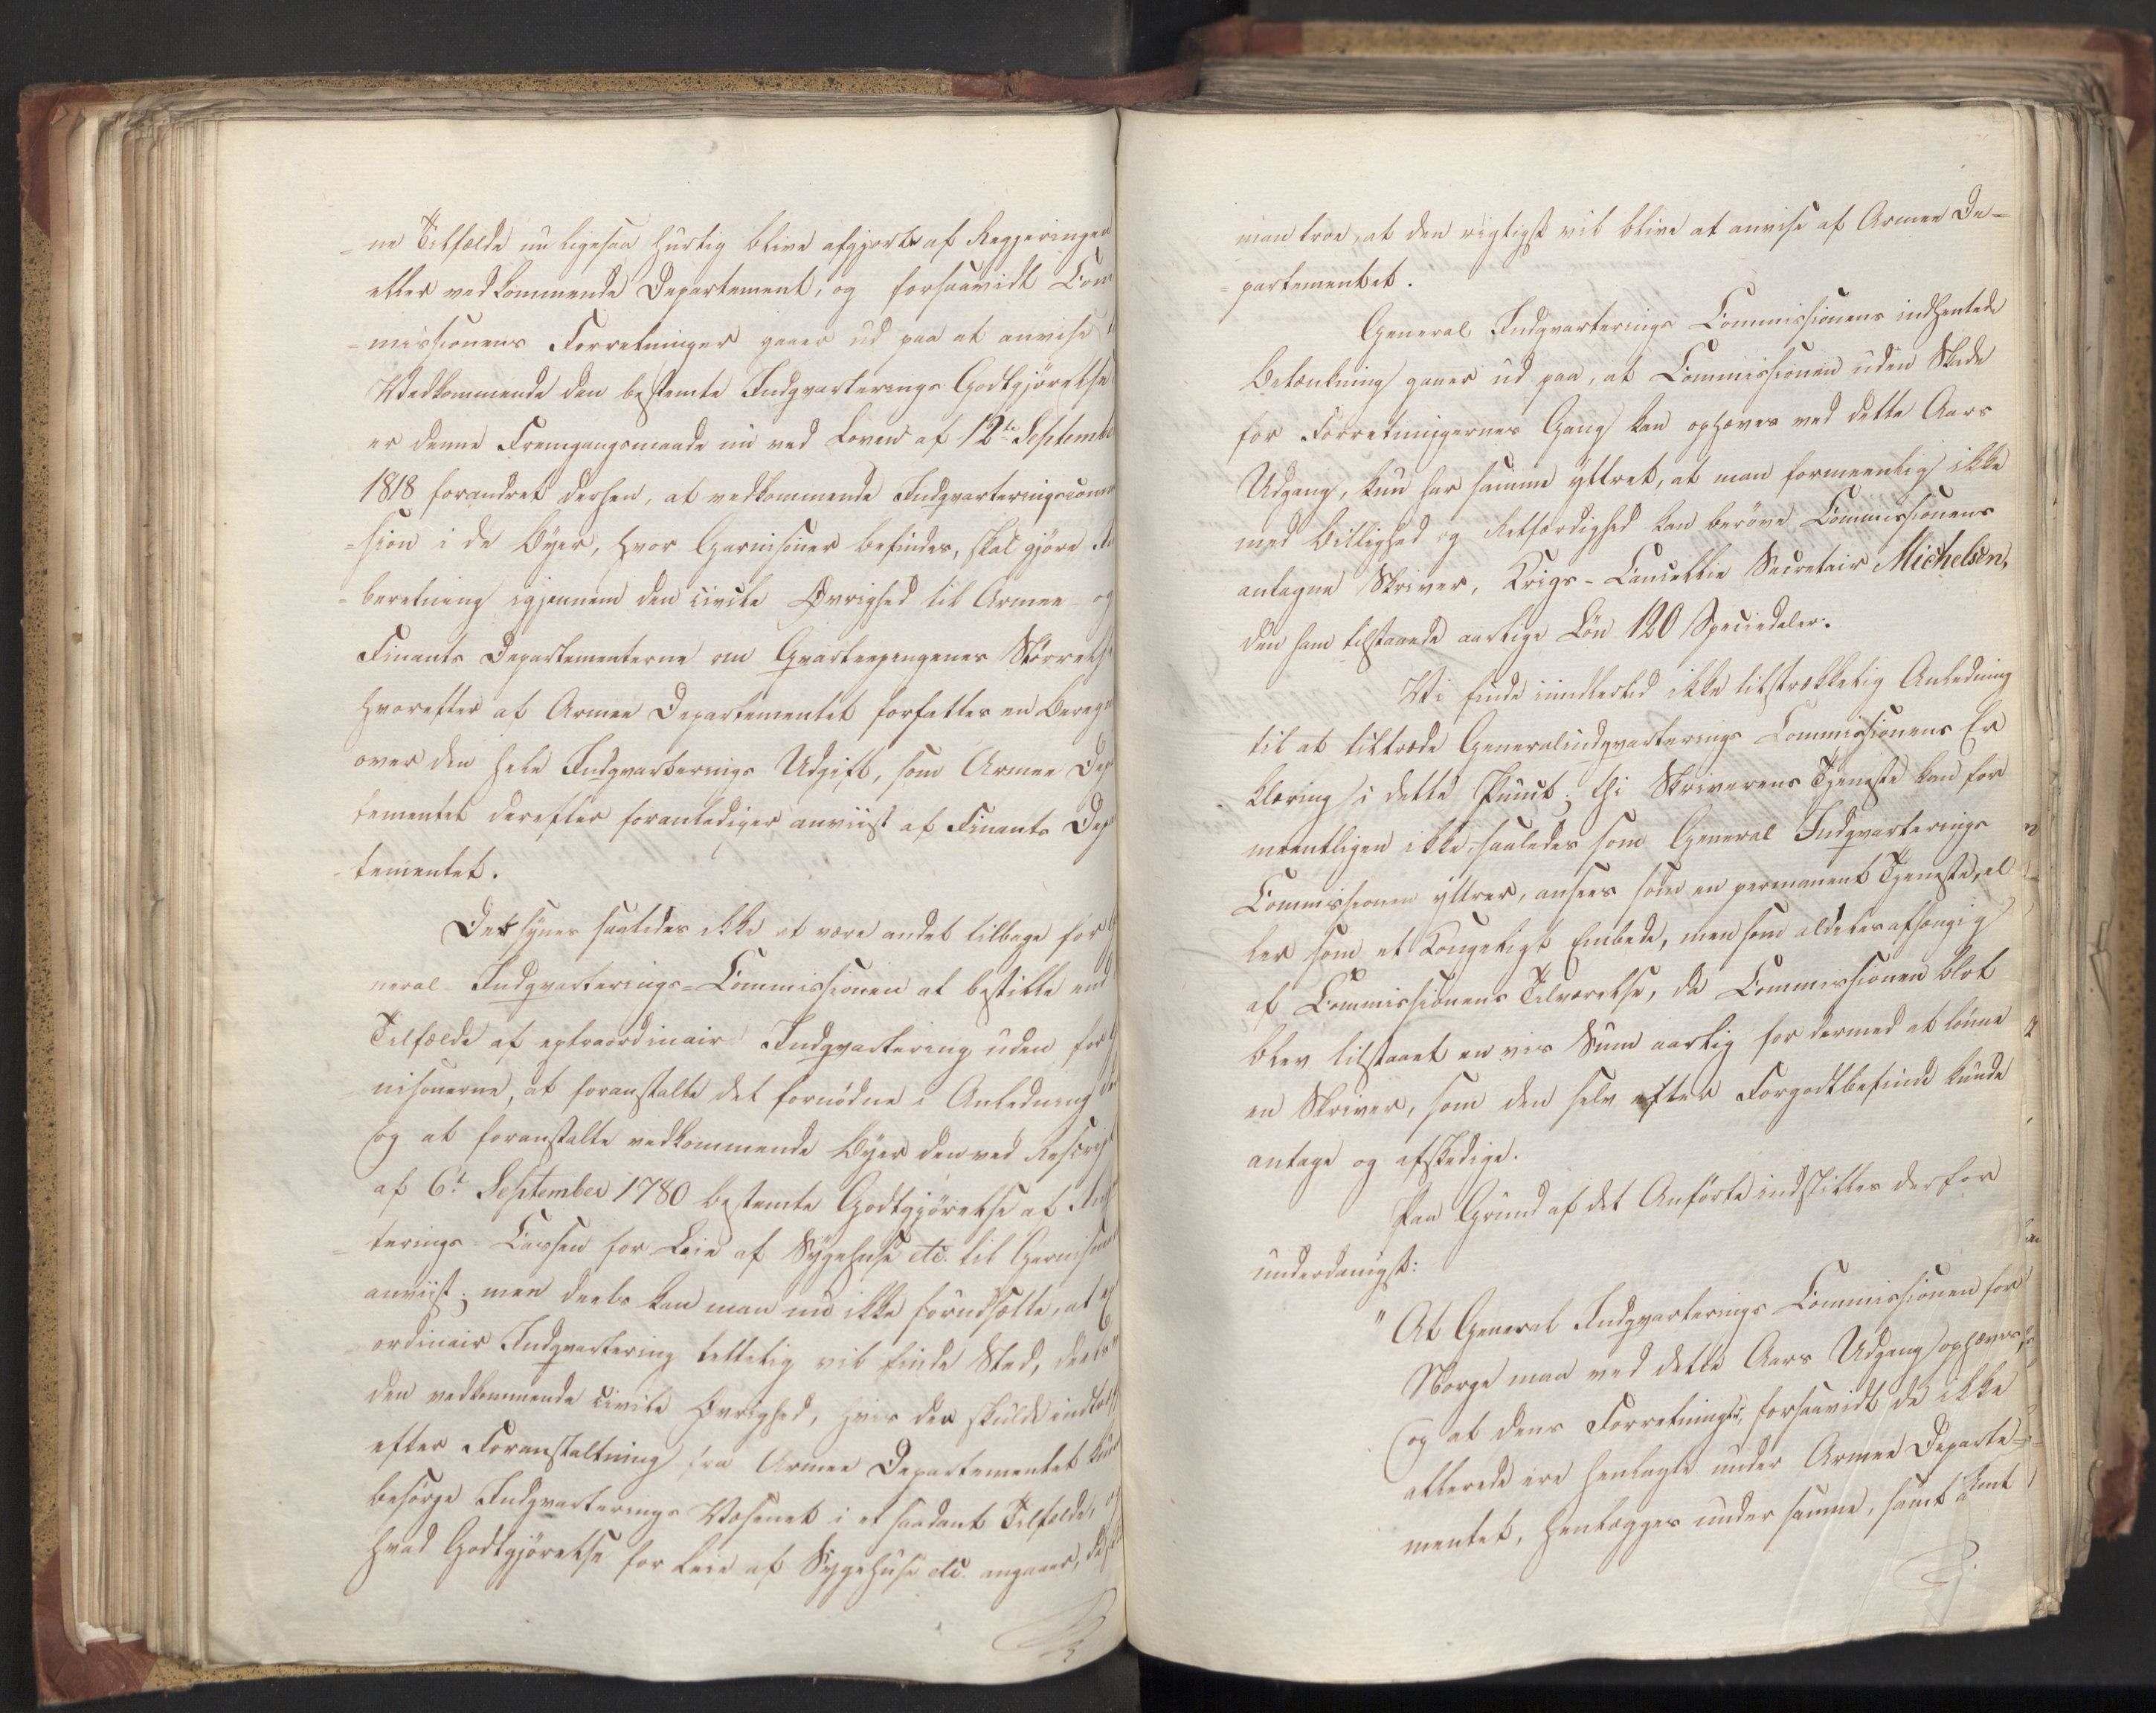 =ne Tilfælde nu ligesaa hurtig blive afgjorte af Regjeringen
eller vedkommende Departement, og forsaavidt Com
=missionens Forretninger gaaer ud paa at anvise
Vedkommende den bestemte Indqvarterings Godtgjørelse
er denne Fremgangsmaade nu ved Loven af 12te Septembe
1818 forandret derhen, at vedkommende Indqvarteringscom
=sion i de Byer, hvor Garnisoner befindes, skal gjøre
=beretning igjennem den civile Øvrighed til Armee og
Finants Departementerne om Qvarteerpengenes Størrelse
hvorefter af Armee Departementet forfattes en Bereg
over den hele Indqvarterings Udgift, som Armee Dep
tementet derefter foranlediger anviist af Finants Dep
tementet.
Det synes saaledes ikke at være andet tilbage for
neral Indqvarterings=Commissionen at bestille end
Tilfælde af extraordinair Indqvartering uden for
nisonerne, at foranstalte det fornødne i Anledning
og at foranstalte vedkommende Byer den ved Rescrip
af 6te September 1780 bestemte Godtgjørelse af
=terings Cassen for Leie af Sygehuse etc. til Garnison
anviist; men deels kan man nu ikke forudsætte, at
ordinair Indqvartering lettelig vil finde Sted, deels
den vedkommende civile Øvrighed, hvis den skulde indtræf
efter Foranstaltning fra Armee Departementet kun
besørge Indqvarterings Væsenet i et saadant Tilfælde,
hvad Godtgjørelse for Leie af Sygehuse etc. angaaer,
man troe, at den rigtigst vil blive at anvise af Armee De=
=partementet.
General Indqvarterings Commissionens indhentede
Betænkning gaaer ud paa, at Commissionen uden Skade
for Forretningernes Gang kan ophæves ved dette Aars
Udgang, kun har samme yttret, at man formeentlig ikke
med Billighed og Retfærdighed kan berøve Commissionens
antagne Skriver, Krigs-Cancellie Secretair Michelsen,
den ham tilstaaede aarlige Løn 120 Speciedaler.
Vi finde imidlertid ikke tilstrækkelig Anledning
til at tiltræde Generalindqvarterings Commissionens Er
klæring i dette Punct; thi Skriverens Tjeneste kan for
meentligen ikke, saaledes som General Indqvarterings
Commissionen yttrer, ansees som en permanent Tjeneste, el
ler som et Kongeligt Embede, men som aldeles afhængig
af Commissionens Tilværelse, da Commissionen blot
blev tilstaaet en vis Sum aarlig for dermed at lønne
en Skriver, som den selv efter Forgodtbefinde kunde
antage og afskedige.
Paa Grund af det Anførte indstilles derfor
underdanigst:
"At General Indqvarterings Commissionen for
Norge maa ved dette Aars Udgang ophæves,
og at dens Forretninger, forsaavidt de ikke
allerede ere henlagte under Armee Departe=
mentet, henlægges under samme, samt at